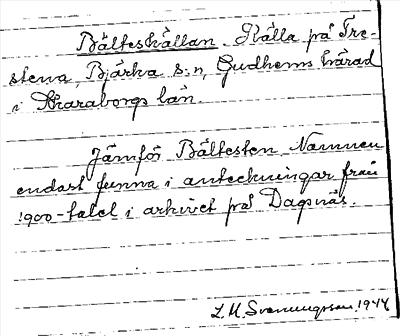 Bälteskällan. Källa på Tre-
stena, Bjärka s:n, Gudhems härad
i Skaraborgs län.
Jämför Bältesten Namnen
endast funna i anteckningar från
1900-talet i arkivet på Dagsnäs.
L. M. Svenungsson. 1944